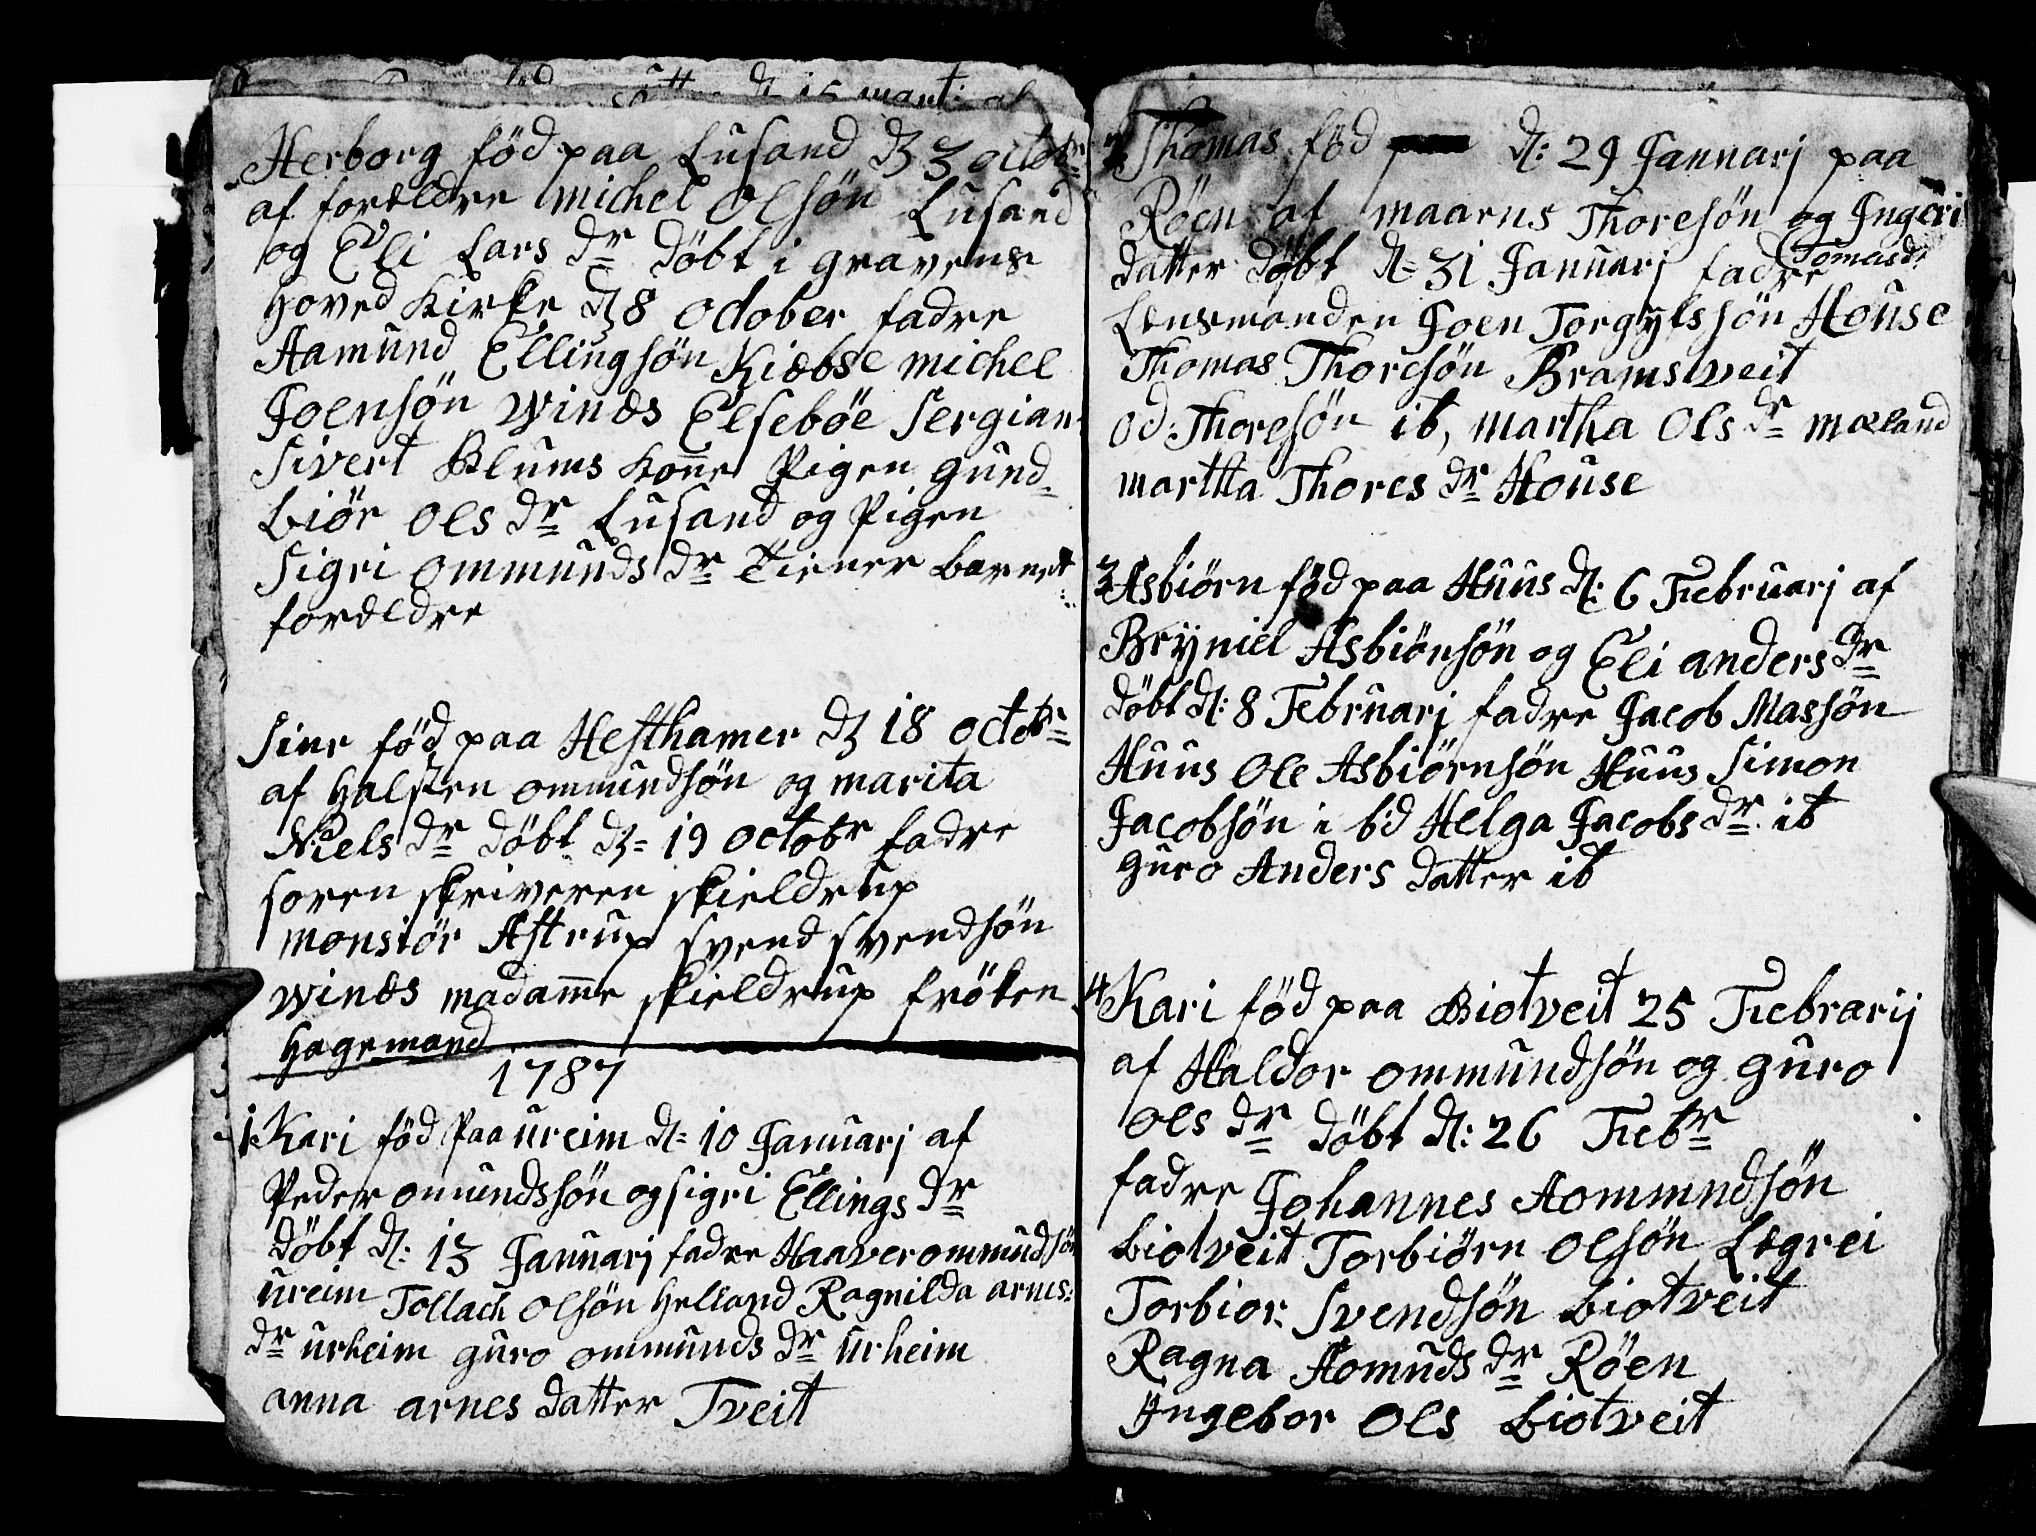 Herborg föd paa Lusand d 3 octobr
af forældre michel Olsön Lusand
og Eli Lars dr döbt i gravens
hoved Kirke d 8 October fadre
Aamund Ellingsön Kiæbse michel
Joensön Winæs Elseböe Sergian
Sivert Blums Kone Pigen gund-
biör Ols dr Lusand og Pigen
Sigri Ommunds dr Tiener barnet
forældre
Sine föd paa Hesthamer d 18 octobr
af Halsten ommundsön og marita
Niels dr döbt d 19 octobr fadre
soren skriveren skieldrup
monsiör Astrup svend svendsön
winæs madamme skieldrup fröken
Hagemand
1787
1. Kari föd Paa ureim d: 10 Januarj af
Peder omundssön og sigri Ellings dr
döbt d: 13 Januarj fadre Haaver ommudsön
ureim Tollach Olsön Helland Ragnilda arnes:
dr urheim guro ommunds dr urheim
anna arnes datter Tveit
2 Thomas föd d: 29 Januarj paa
Röen af maarns Thoresön og Ingeri
Tomasd:
datter döbt d: 31 Januarj fadre
Lensmanden Joen Torgylssön House
Thomas Thoresön Bramstveit
od: Thoresön ib, martha Ols dr mæland
martha Thores dr House
3 Asbiörn föd paa Huus d: 6 Februarj af
Bryniel Asbiörnsön og Eli anders dr
döbt d: 8 Februarj fadre Jacob Massön
Huus Ole Asbiörnsön Huus Simon
Jacobsön i bd Helga Jacobs dr ib
guro Anders datter ib
4 Kari föd paa Biotveit 25 Febrarij
af Haldor ommundsön og guro
Ols dr döbt d: 26 Febr
fadre Johannes Aommndsön
Biotveit Torbiörn Olsön Lægrei
Torbior: Svendsön Biotveit
Ragna Aomuds dr Röen
Ingebor Ols Biotveit